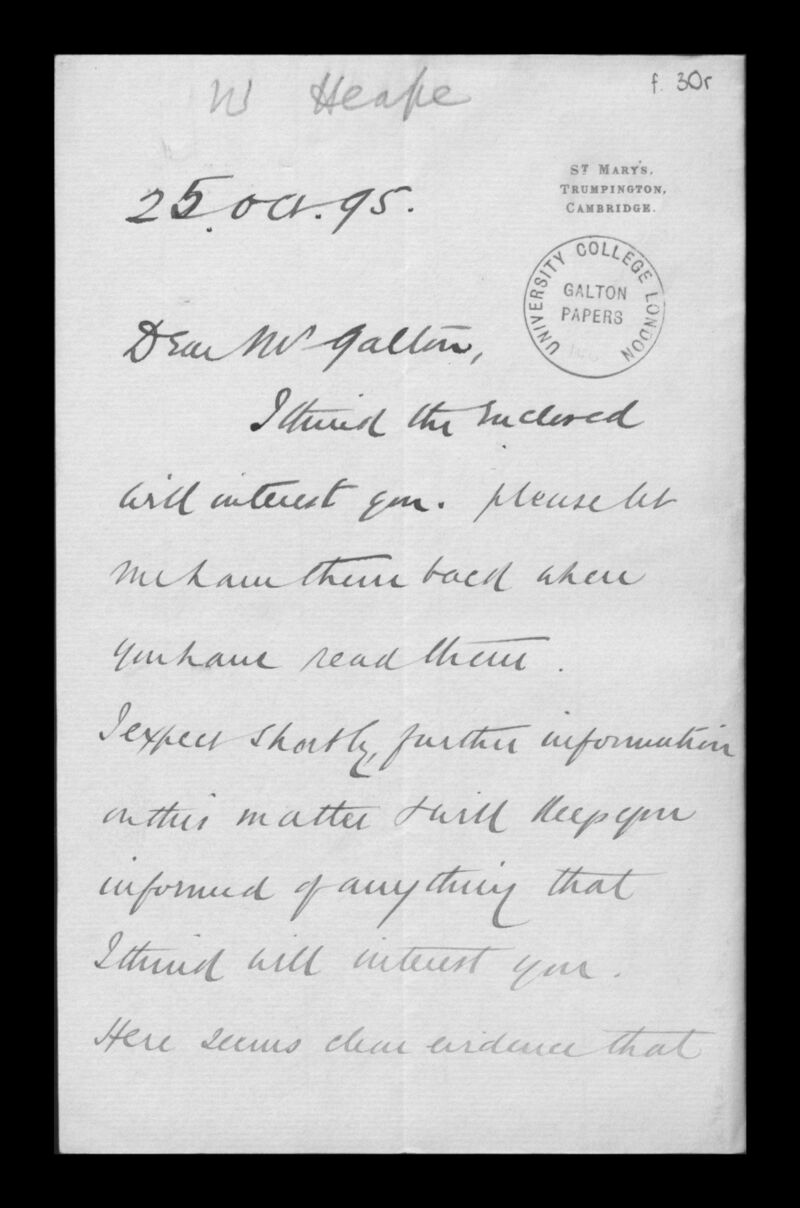 W Heape
f. 30r
ST MARY'S,
TRUMPINGTON,
CAMBRIDGE.
25. Oct. 95.
UNIVERSITY COLLEGE LONDON
GALTON
PAPERS
Dear Mr Galton,
I think the enclosed
will interest you. please let
me have them back when
you have read them.
I expect shortly, further information
on this matter & will keep you
informed of anything that
I think will interest you.
Here seems clear evidence that